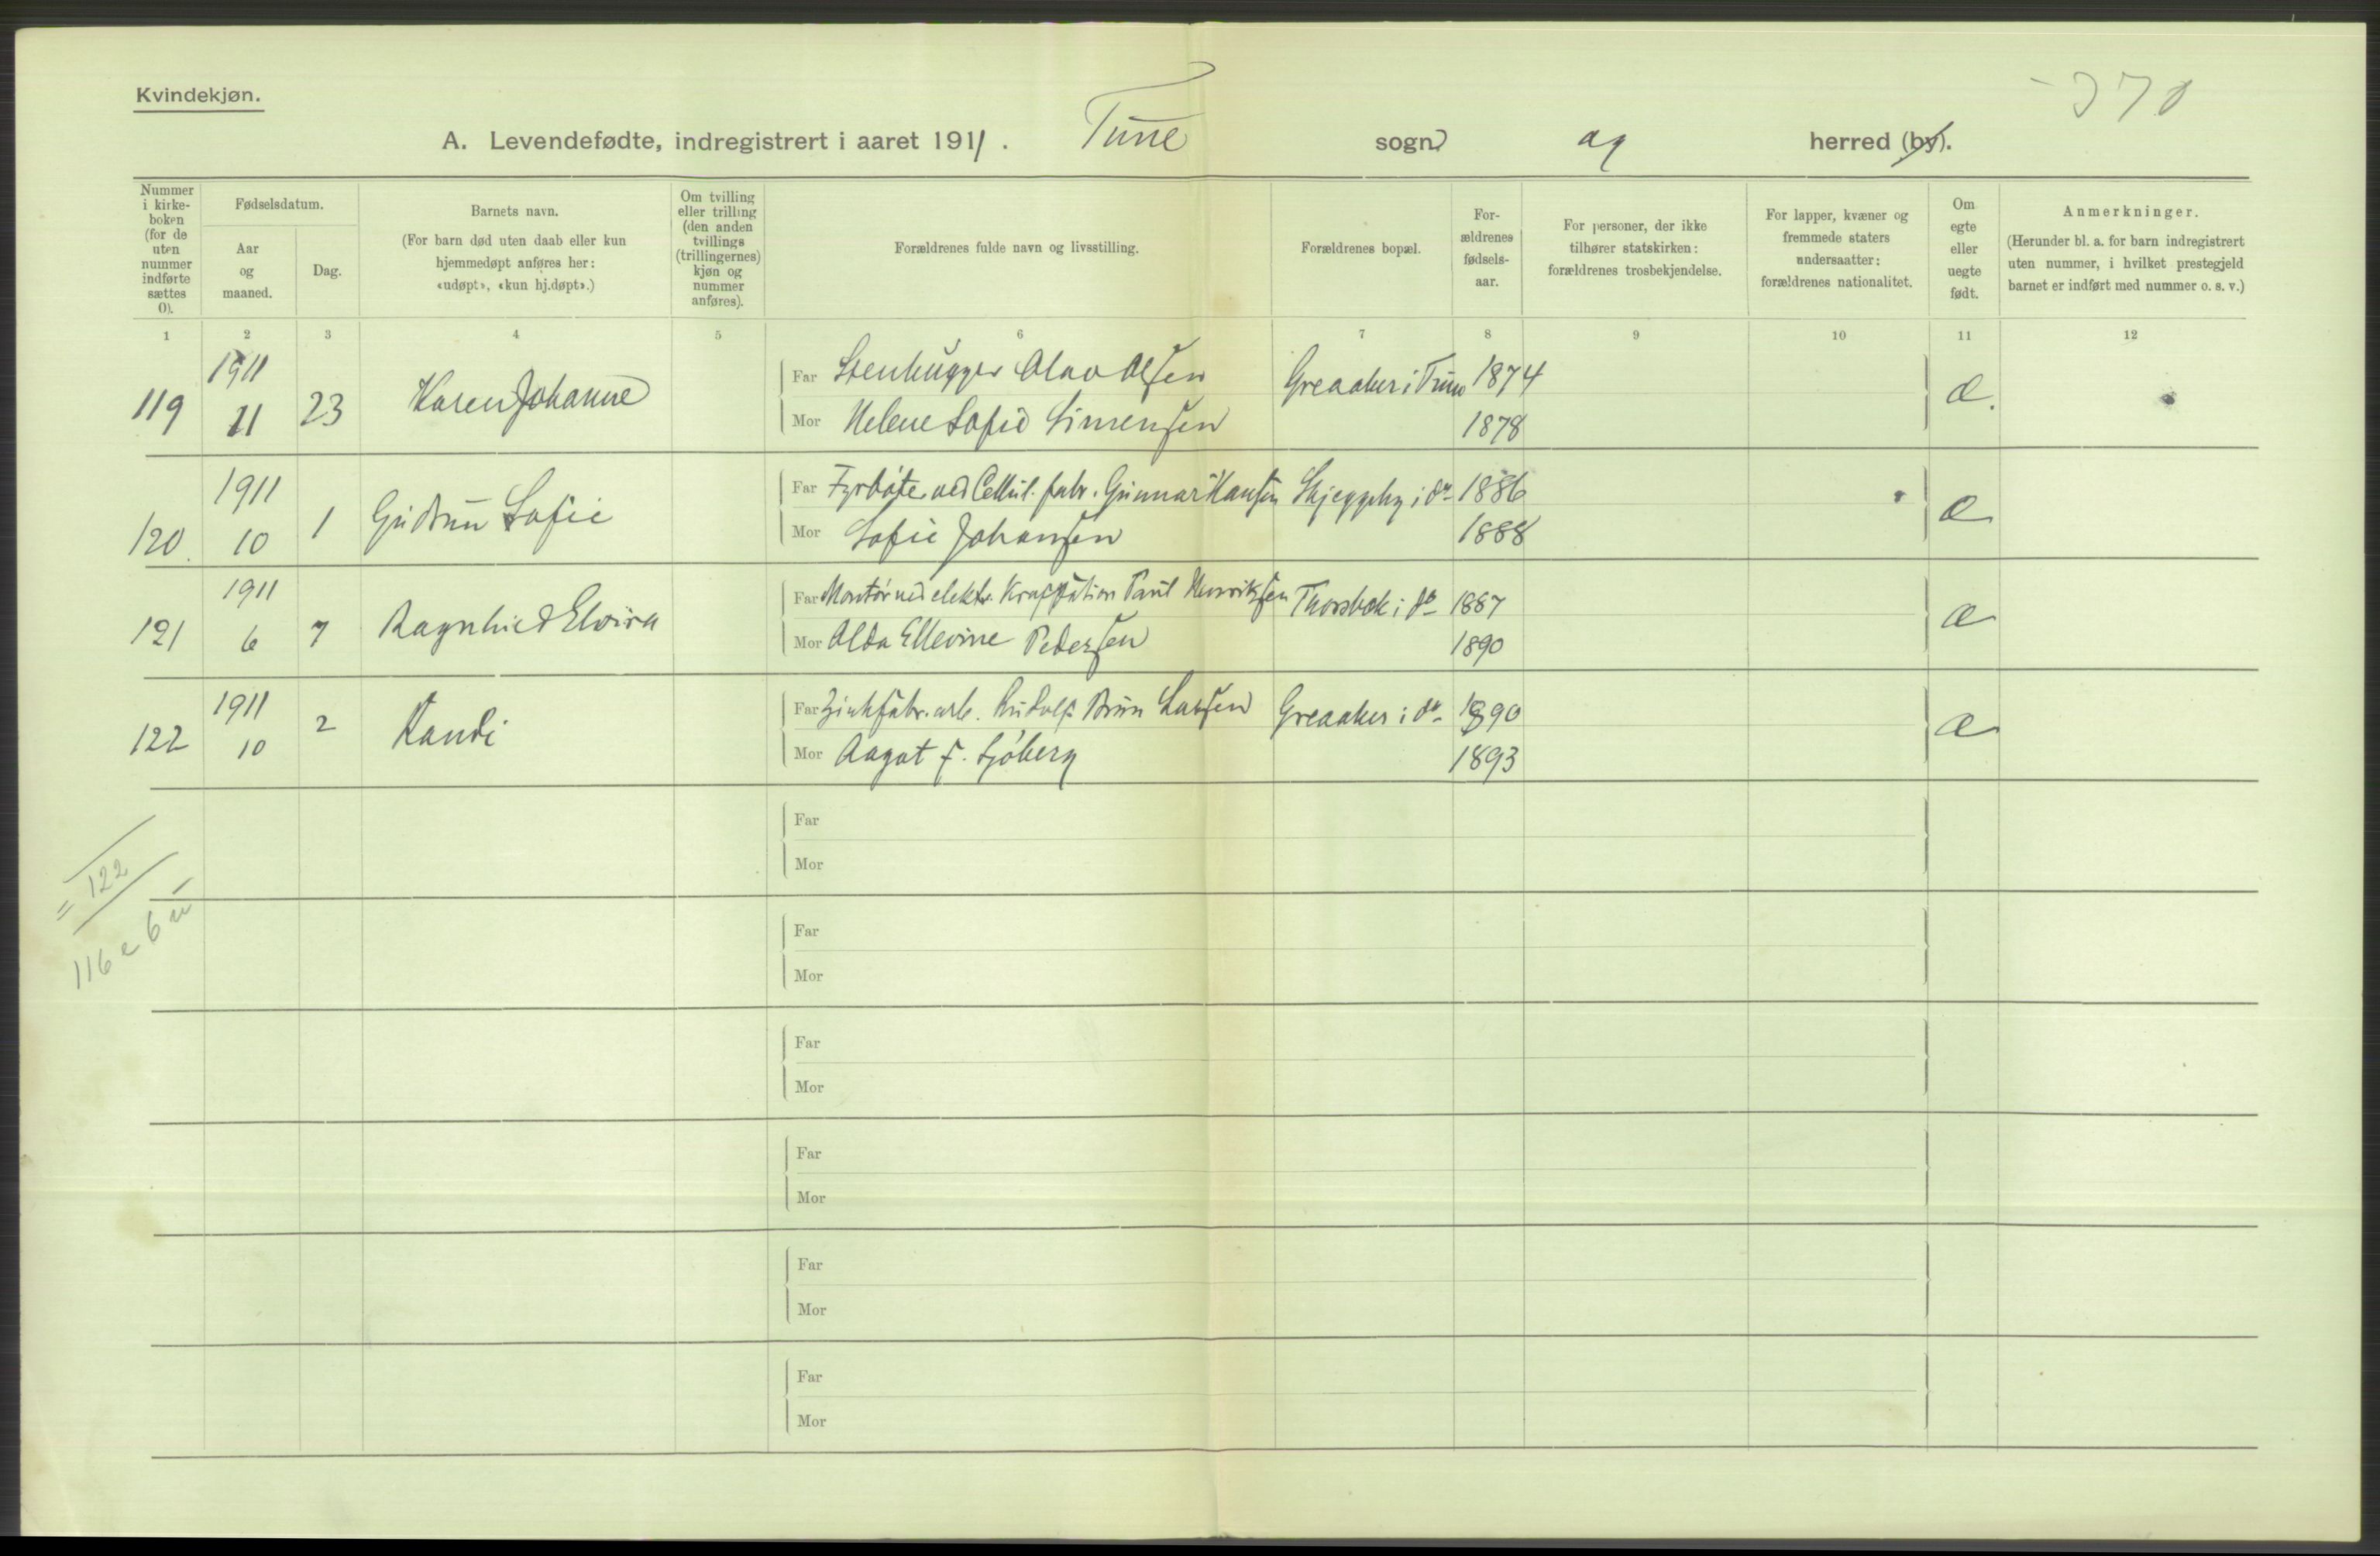 Kvindekjøn.
370
A. Levendefødte, indregistrert i aaret 1911. Tune sogn og herred (by).
Nummer i kirke-boken (for de uten nummer indførte sættes 0).
Fødselsdatum.
Aar og maaned.
Dag.
Barnets navn.
(For barn død uten daab eller kun hjemmedøpt anføres her: «udøpt», «kun hj.døpt».)
Om tvilling eller trilling (den anden tvillings (trillingernes) kjøn og nummer anføres).
Forældrenes fulde navn og livsstilling.
Forældrenes bopæl.
For-ældrenes fødsels-aar.
For personer, der ikke tilhører statskirken: forældrenes trosbekjendelse.
For lapper, kvæner og fremmede staters undersaatter: forældrenes nationalitet.
Om egte eller uegte født.
Anmerkninger.
(Herunder bl. a. for barn indregistrert uten nummer, i hvilket prestegjeld barnet er indført med nummer o. s. v.)
1 2 3 4 5 6 7 8 9 10 11 12
119 1911 11 23 Karen Johanne Far Stenhugger Olav Olsen Greaaker i Tune 1874 e.
Mor Helene Sofie Simensen 1878
120. 1911 10 1 Gudrun Sofie Far Fyrbøter ved Cellul. fabr. Gunnar Hansen Skjeggeby i do 1886 e
Mor Sofie Johansen 1888
121 1911 6 7 Ragnhild Elvira Far Montør ved elektr. Kraftstation Paul Henriksen Thorsbæk i do 1887 e
Mor Alda Ellevine Pedersen 1890
122 1911 10 2 Randi Far Zinkfabr. arb. Rudolf Brun Larsen Greaaker i do 1890 e
Mor Aagot F. Sjøberg 1893
Far
Mor
= 122
116 e 6 u
Far
Mor
Far
Mor
Far
Mor
Far
Mor
Far
Mor